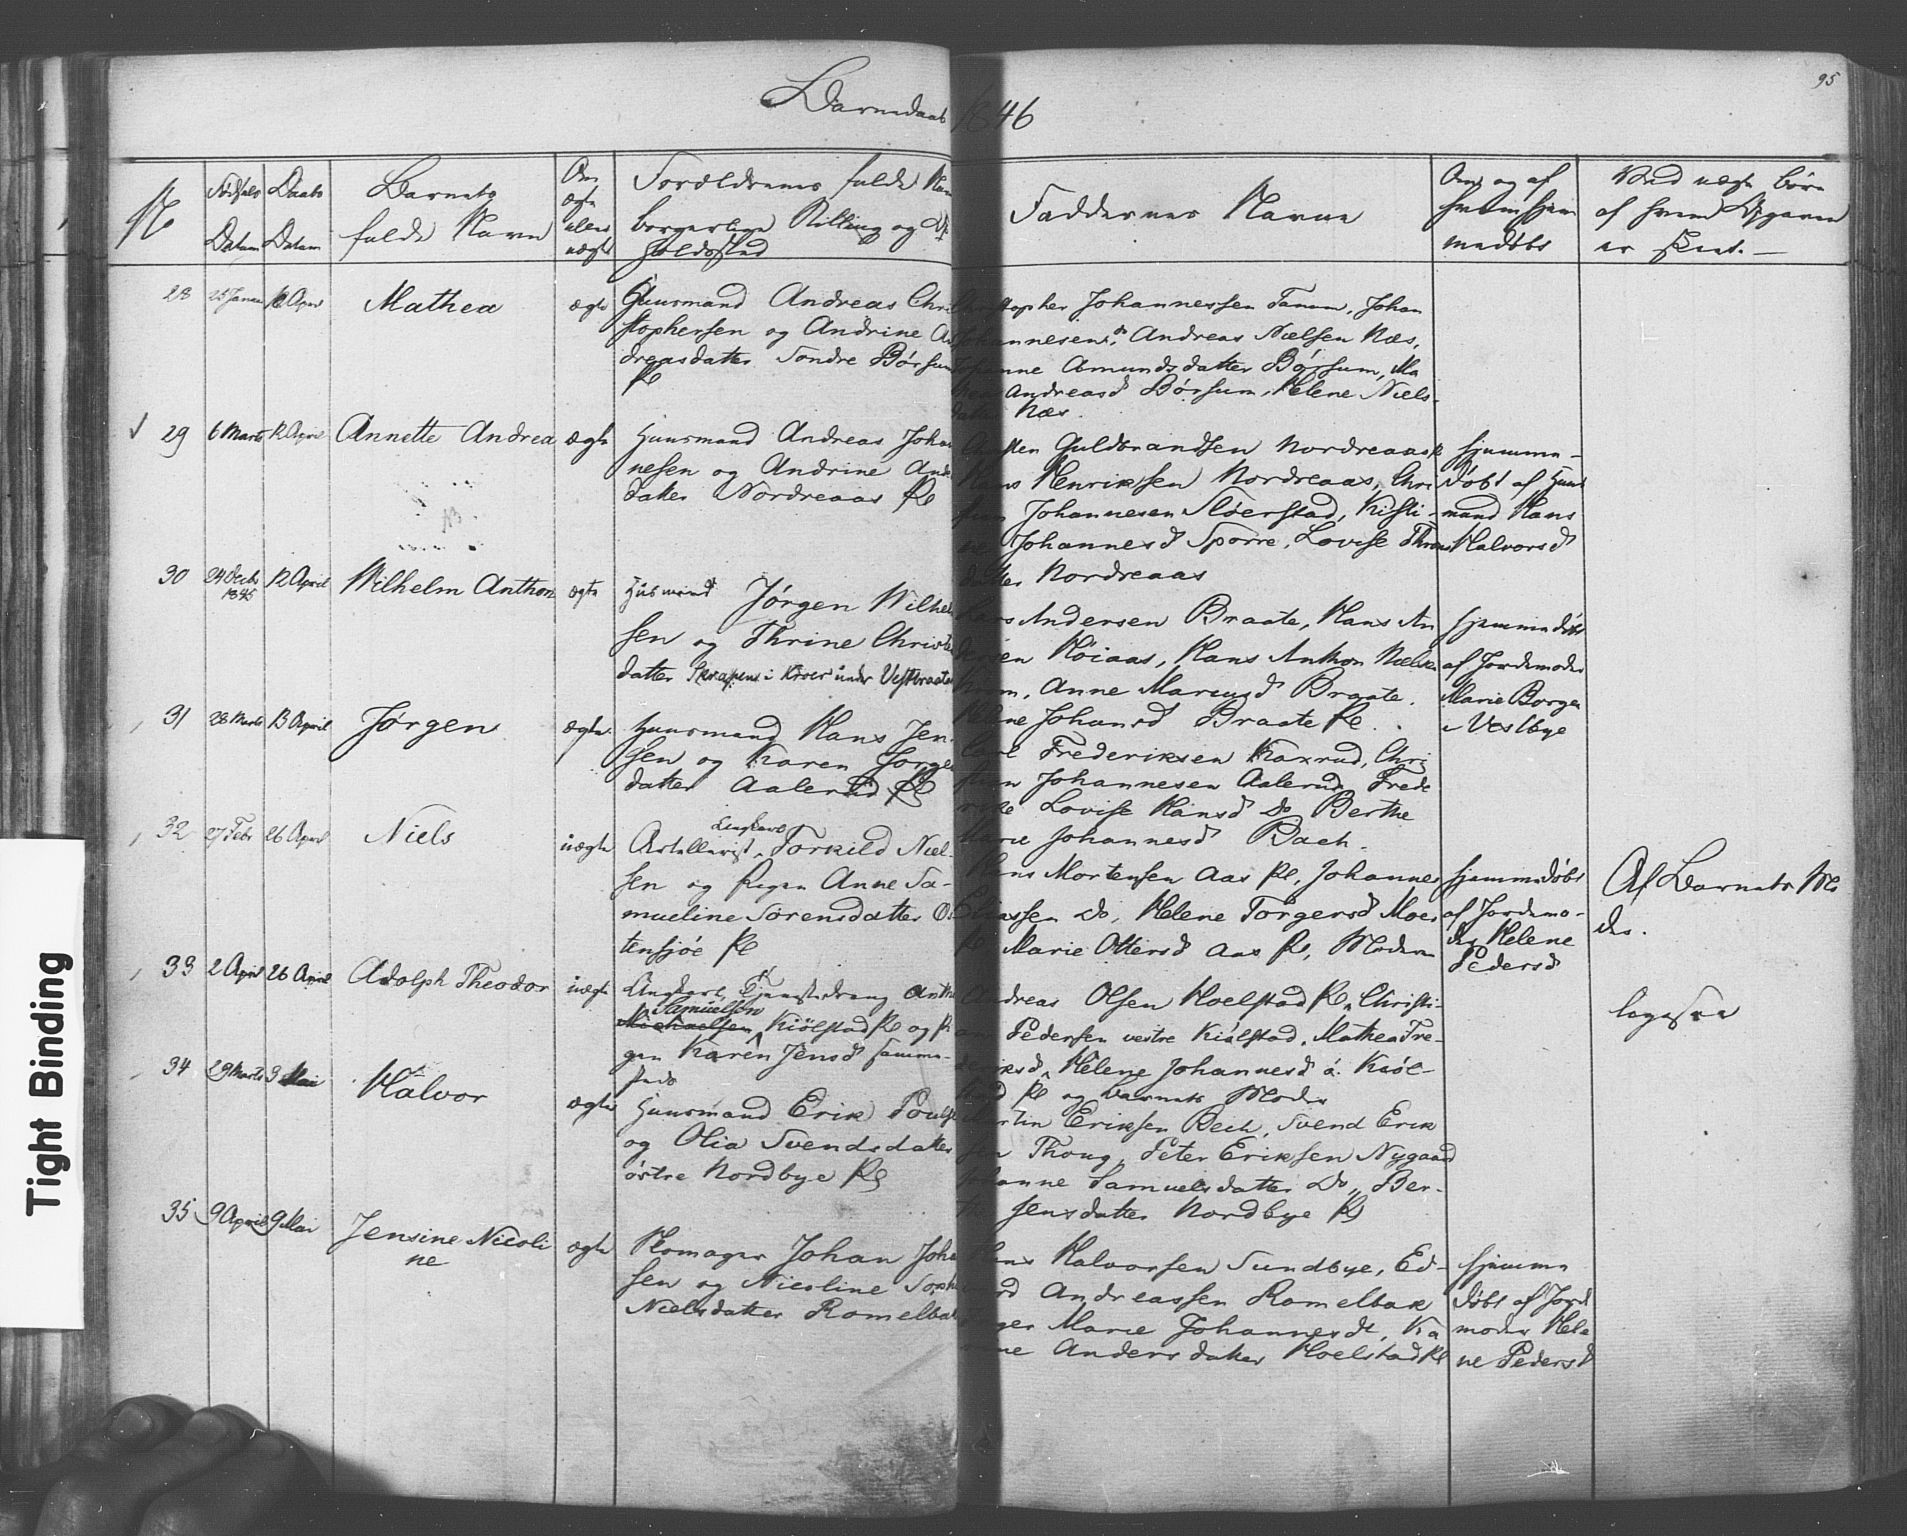 95
Barnedaab 1846
№
Fødsels
Datum
Daabs
Datum
Barnets
fulde Navn
Om
ægte
eller
uægte
Forældrenes fulde Navn
borgerlige Stilling og Op
holdssted
Faddernes Navne
Om og af
hvem hjem
medøbt
Ved uægte børn
af hvem Opgaven
er skeet.
28
12 April
Mathea
ægte
Huusmand Andreas Chri
stophersen og Andrine An
dreasdatter Søndre Børsum
Kr
stopher Johannessen Tanum, Johan
Johannesen do, Andreas Nielsen Næs,
Johanne Amundsdatter Børsum, Ma
Andreasd Børsum, Helene Niels-
datter Næs.
29
6 Marts
12 April
Annette Andrea
ægte
Huusmand Andreas Johan
nesen og Andrine Anders
datter Nordreaas Kr
Guldbrandsen Nordreaas
Hans Henriksen Nordreaas, Chri
Johannesen Sloerstad, Kisti-
ne Johannesd Sporre, Lovise Thron
datter Nordreaas
Hjemme-
døbt af Huus
mand Hans
Halvorsd
30
24 Decbr
1845
12 April
Wilhelm Anthon
ægte
Huusmand Jørgen Wilhelm
sen og Thrine Christen
datter Skrapens i Kroer under Vestbraate
Lars Andersen Braate, Hans An
dersen Høiaas, Hans Anthon Nielsen
Anne Mariusd Braate,
Helene Johansd Braate Kr.
hjemmedøbt
af Jordemoder
Marie Borgen
Vestbye
31
28 Marts
13 April
Jørgen
ægte
Huusmand Hans Jen
sen og Karen Jørgens
datter Aalerud Kr
Carl Frederiksen Kaxrud, Chri
stian Johannesen Aalerud, Frede
rikke Lovise Hansd do, Berthe
Marie Johannesd Bach.
32
27 Febr
26 April
Niels
uægte
Artillerist, Ungkarl Torkild Niel-
sen og Pigen Anne Sa-
mueline Sørensdatter Os
tensjøe Kr
Hans Mortensen Aas Kr, Johannes
Eliassen do, Helene Torgersd Moer
Kr Marie Ottersd Aas Kr, Moderen
hjemmedøbt
af Jordemo-
der Helene
Pedersd
Af Barnets Mo
der.
33
2 April
26 April
Adolph Theodor
uægte
Ungkarl, Tjenestedreng Anthon
Samuelsen
Michaelsen, Kiölstad Kr og Pi
gen Karen Jensd samme-
steds
Andreas Olsen Hoelstad Kr, Christi-
an Pedersen vestre Kiölstad, Mathea Fre-
deriksd, Helene Johannesd á. Kiöl-
stad Kr og Barnets Moder
34
29 Marts
3 Mai
Halvor
ægte
Huusmand Erik Poulse
og Olia Svendsdatter
østre Nordbye Kr
Martin Eriksen Bech, Svend Erik
sen Thoug, Peter Eriksen Nygaard
Johanne Samuelsdatter do, Ber-
the Jensdatter Nordbye Kr
35
9 April
9 Mai
Jensine Nicoli
ne
ægte
Skomager Johan Johan
sen og Nicoline Soph
Nielsdatter Romelbak
Hans Halvorsen Sundbye, Ed-
vard Andreassen Romelbak
Marie Johannesdt, Ka
Andersdatter Hoelstad Kr
hjemme
døbt af Jorde
moder Hele
ne Pedersd
Tight Binding